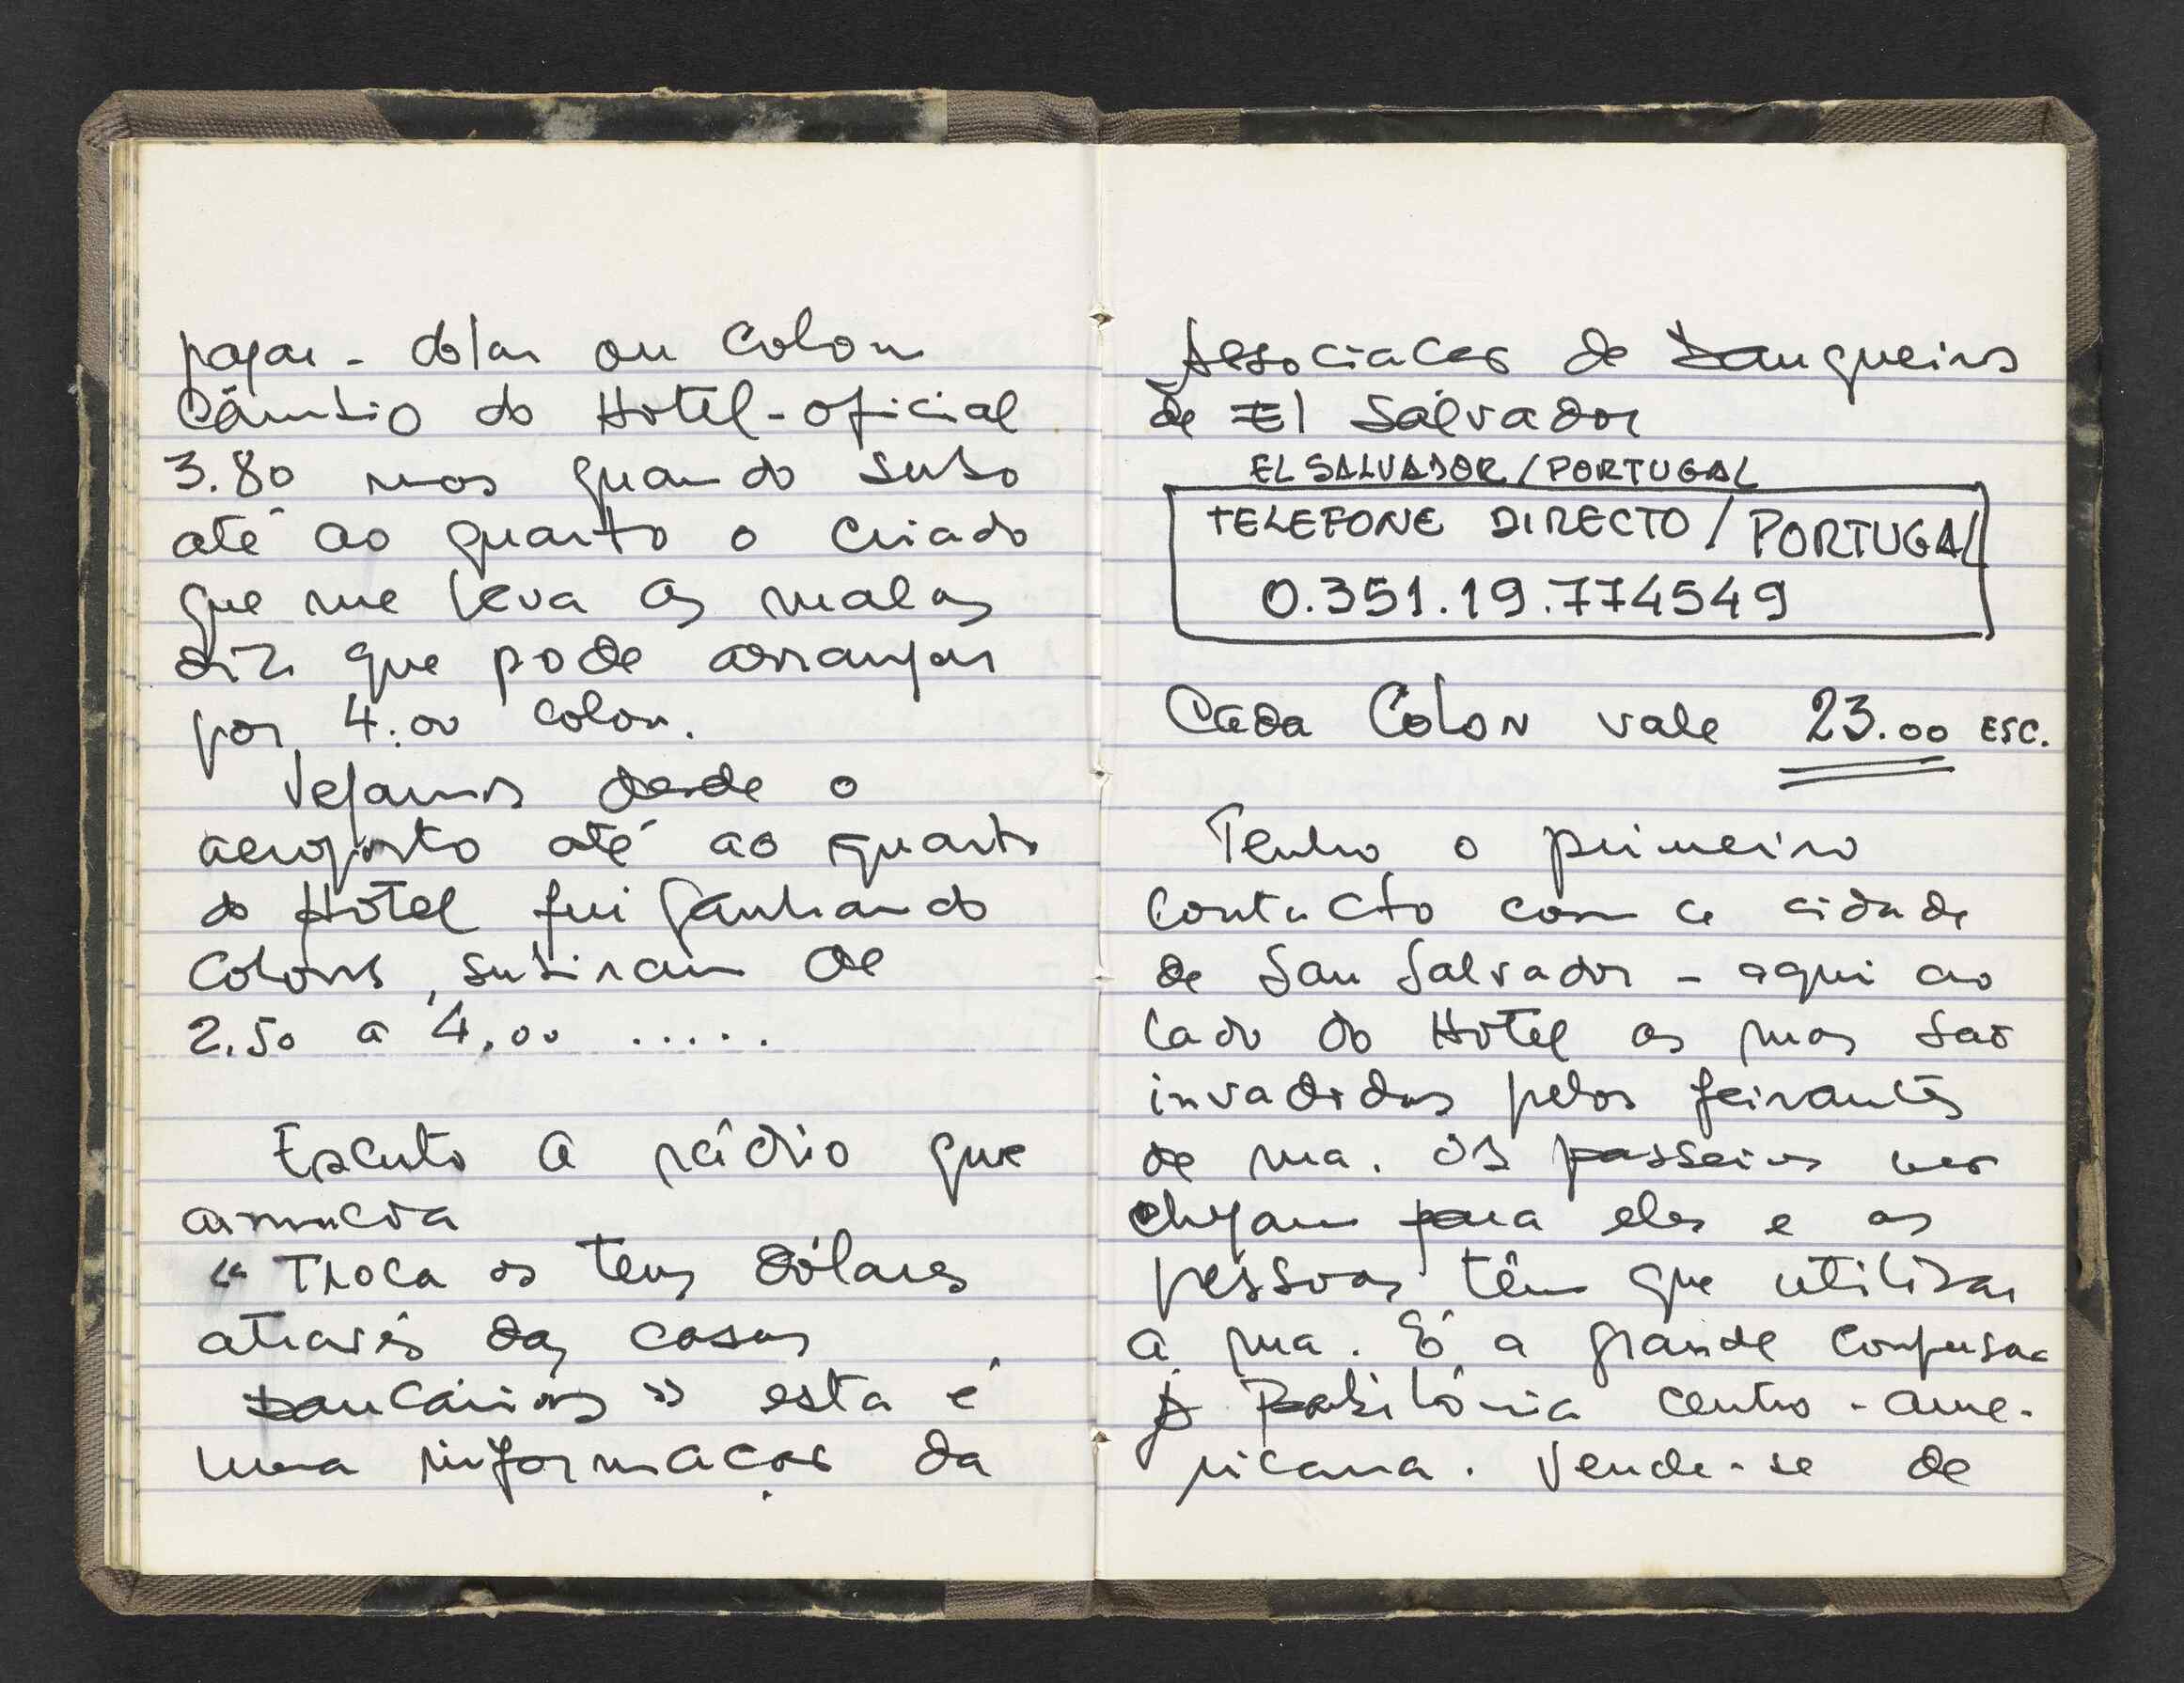 pagar - dolar ou Colon
Câmbio do Hotel - oficial
3.80 mas quando subo
até ao quarto o criado
que me leva as malas
diz que pode arranjar
por 4.00 colon.
Vejamos desde o
aeroporto até ao quarto
do Hotel fui ganhando
Colons, subiram de
2.50 a 4,00 .....
Escuto a rádio que
annuncia
"Troca os teus dólares
através das casas
bancárias" esta é
uma informação da
Associacao de Banqueiros
de El Salvador
EL SALVADOR / PORTUGAL
TELEFONE DIRECTO / PORTUGAL
0.351.19.774549
Cada Colon vale 23.00 ESC.
Tenho o primeiro
contacto com a cidade
de San Salvador - aqui ao
lado do Hotel as ruas são
invadidas pelos feirantes
de rua. Os passeios nao
chegam para eles e as
pessoas têm que utilizar
a rua. É a grande confusao
Babilónia centro-ame-
ricana. Vende-se de